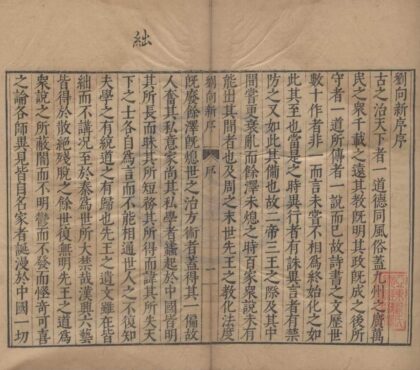 絀
劉向新序序
古之治天下者一道德同風俗蓋九州之廣萬
民之衆千載之遠其教既明其政既成之後所
守者一道所傳者一說而已故詩書之文歷世
數十作者非一而言未嘗不相為終始化之如
此其至也當是之時異行者有誅異言者有禁
防之又如此其備也故二帝三王之際及其中
間嘗更衰亂而餘澤未熄之時百家衆說未有
能出其間者也及周之末世先王之教化法度
劉向新序 序 一
既廢餘澤既熄世之治方術者蓋得其一偏故
人奮其私意家尚其私學者蠭起於中國皆明
其所長而昧其所短矜其所得而諱其所失天
下之士各自為言而不能相通世人之不復知
夫學之有統道之有歸也先王之遺文雖在皆
絀而不講况至於秦為世所大禁哉漢興六藝
皆得於散絶殘脫之餘世復無明先王之道為
衆說之所蔽闇而不明鬱而不發而怪奇可喜
之論各師異見皆自名家者誕漫於中國一切